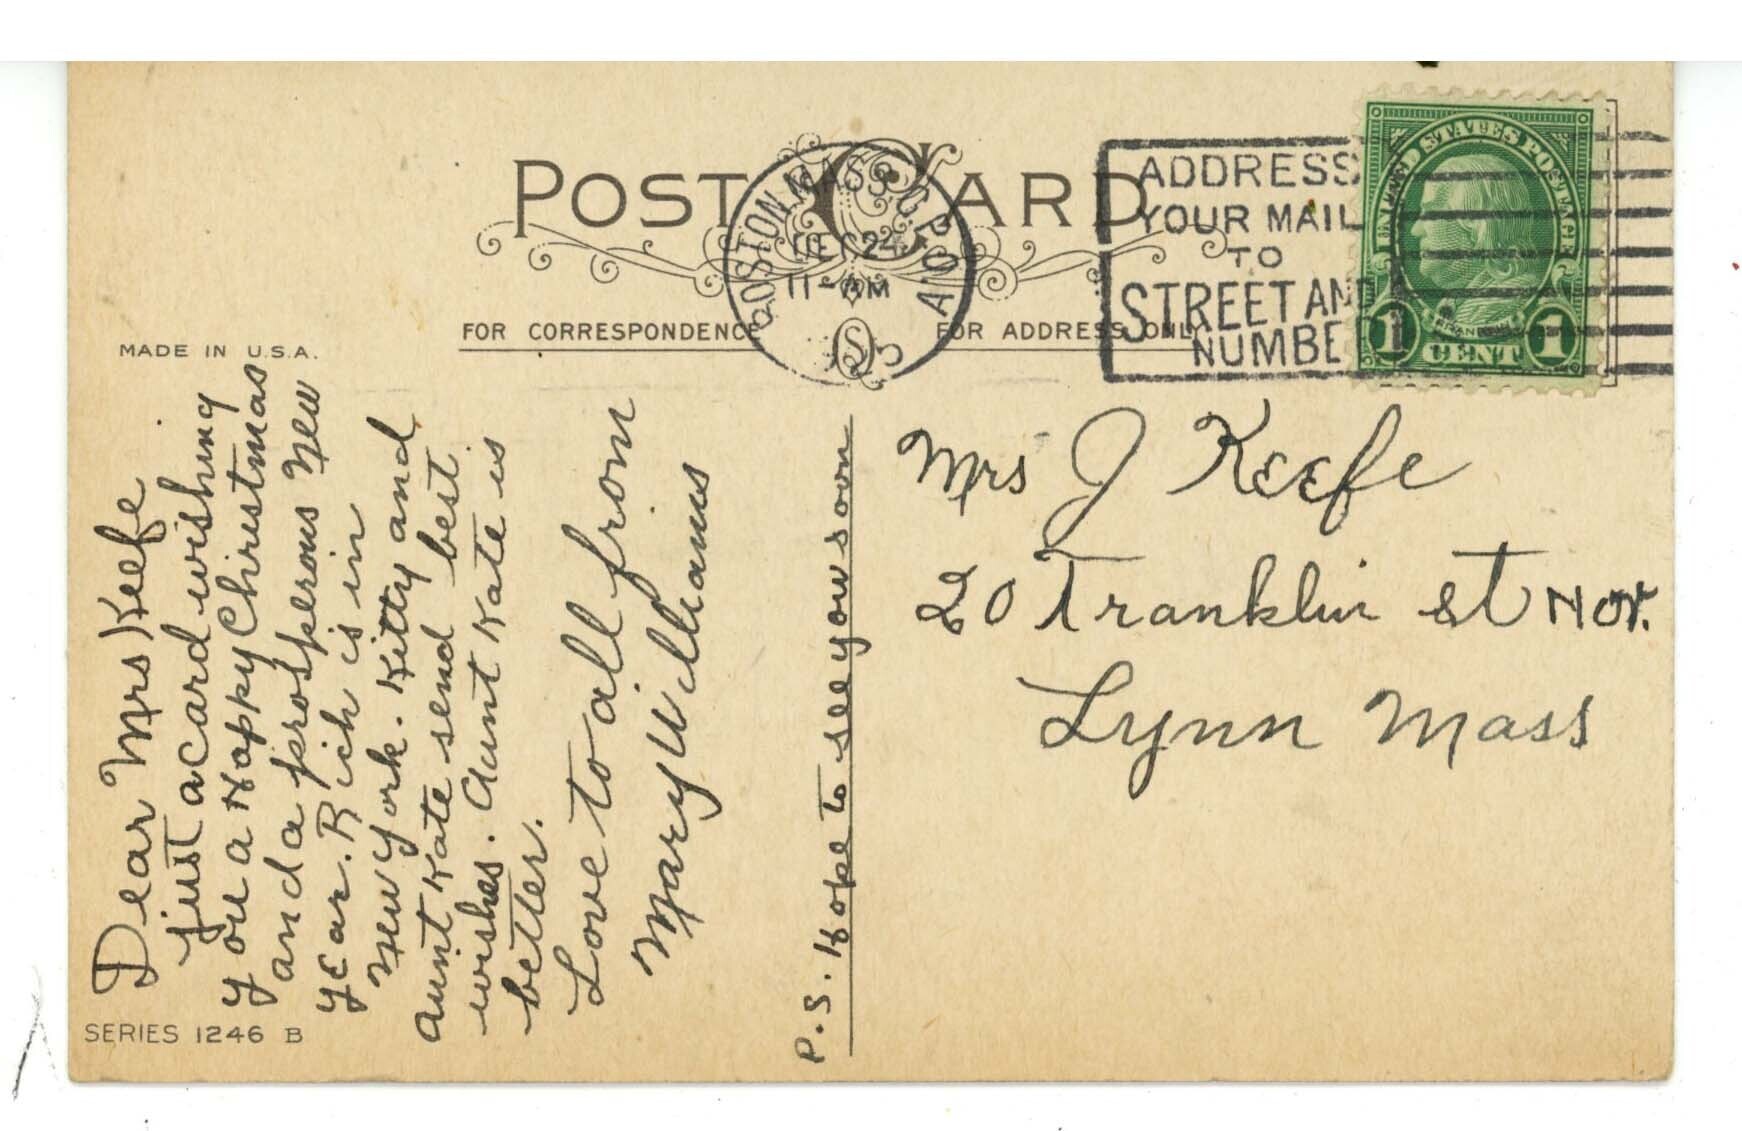 POST CARD
BOSTON, MASS. G.P.O.A.
DEC 24
11-AM
ADDRESS
YOUR MAIL
TO
STREET AND
NUMBE
UNITED STATES POSTAGE
FRANKLIN
1 CENT 1
MADE IN U.S.A.
FOR CORRESPONDENCE
FOR ADDRESS ONLY
Dear Mrs Keefe
just a card wishing
you a Happy Christmas
and a prosperous New
year. Rich is in
New York. Kitty and
Aunt Kate send best
wishes. Aunt Kate is
better.
Love to all from
Mary Williams
P.S. Hope to see you soon
Mrs J Keefe
20 Franklin St
Lynn Mass
SERIES 1246 B